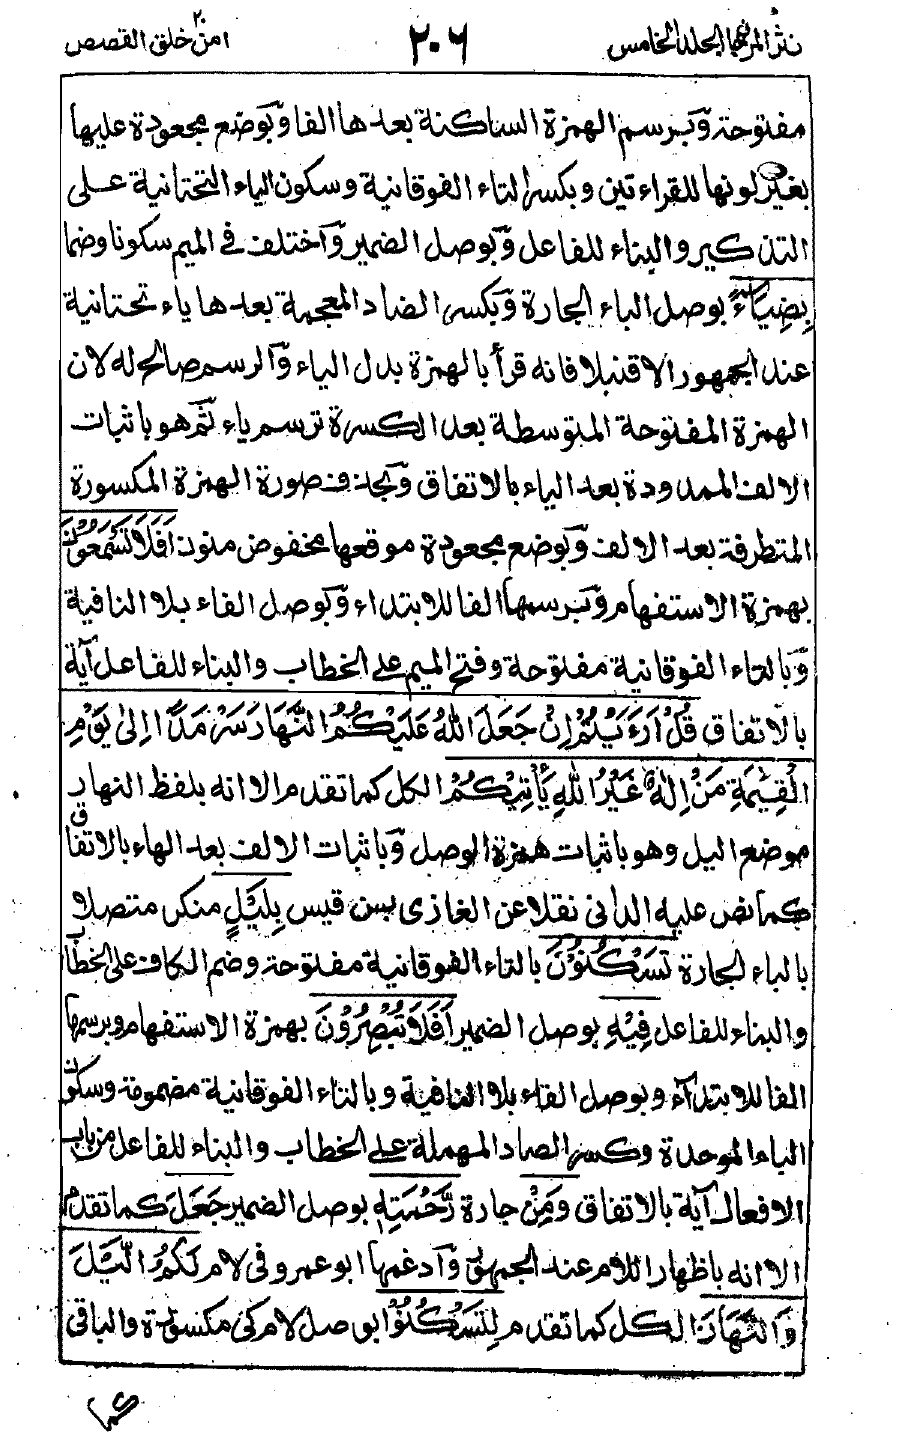 نثر المرجان المجلد الخامس
٢٠٦
امن خلق ٢٠ القصص
مفتوحة وبرسم الهمزة الساكنة بعدها الفا وبوضع مجعودة عليها
بغير لونها للقراءتين وبكسر التاء الفوقانية وسكون الياء التحتانية على
التذكير والبناء للفاعل وبوصل الضمير واختلف في الميم سكونا وضما
بِضِيَآءٍ بوصل الباء الجارة وبكسر الضاد المعجمة بعدها ياء تحتانية
عند الجمهور الا قنبلا فانه قرأ بالهمزة بدل الياء والرسم صالح له لان
الهمزة المفتوحة المتوسطة بعد الكسرة ترسم ياء ثم هو باثبات
الالف الممدودة بعد الياء بالاتفاق وبحذف صورة الهمزة المكسورة
المتطرفة بعد الالف وبوضع مجعودة موقعها مخفوض منون اَفَلَا تَسْمَعُوْنَ
بهمزة الاستفهام وبرسمها الفا للابتداء وبوصل الفاء بلا النافية
وبالتاء الفوقانية مفتوحة وفتح الميم على الخطاب والبناء للفاعل آية
بالاتفاق قُلْ اَرَءَيْتُمْ اِنْ جَعَلَ اللّٰهُ عَلَيْكُمُ النَّهَارَ سَرْمَدًا اِلىٰ يَوْمِ
الْقِيٰمَةِ مَنْ اِلٰهٌ غَيْرُ اللّٰهِ يَأْتِيْكُمْ الكل كما تقدم الا انه بلفظ النهار
موضع اليل وهو باثبات همزة الوصل وباثبات الالف بعد الهاء بالاتفاق
كما نص عليه الداني نقلا عن الغازى بن قيس بِلَيْلٍ منكر متصلا
بالباء الجارة تَسْكُنُوْنَ بالتاء الفوقانية مفتوحة وضم الكاف على الخطاب
والبناء للفاعل فِيْهِ بوصل الضمير اَفَلَا تُبْصِرُوْنَ بهمزة الاستفهام وبرسمها
الفا للابتداء وبوصل الفاء بلا النافية وبالتاء الفوقانية مضمومة وسكون
الباء الموحدة وكسر الصاد المهملة على الخطاب والبناء للفاعل من باب
الافعال آية بالاتفاق وَمِنْ جارة رَّحْمَتِهٖ بوصل الضمير جَعَلَ كما تقدم
الا انه باظهار اللام عند الجمهور وادغمها ابو عمرو في لام لَكُمُ الَّيْلَ
وَالنَّهَارَ الكل كما تقدم لِتَسْكُنُوْا بوصل لام كي مكسورة والباقي
كما